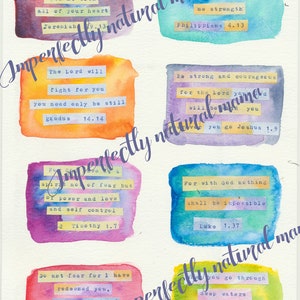 all of your heart
Jeremiah
me strength
Philippians 4.13
Imperfectly natural mama.
The Lord will
fight for you
you need only be still
exodus 14.14
Be strong and courageous
for the Lord your
will be you
you go Joshua 1.9
Imperfectly natural mama.
spirit not of fear but
of power and love
and self control
Timothy 1.7
For with God nothing
shall be impossible
Luke 1.37
Imperfectly natural ma
Do not fear for I have
redeemed you.
you go through
deep waters